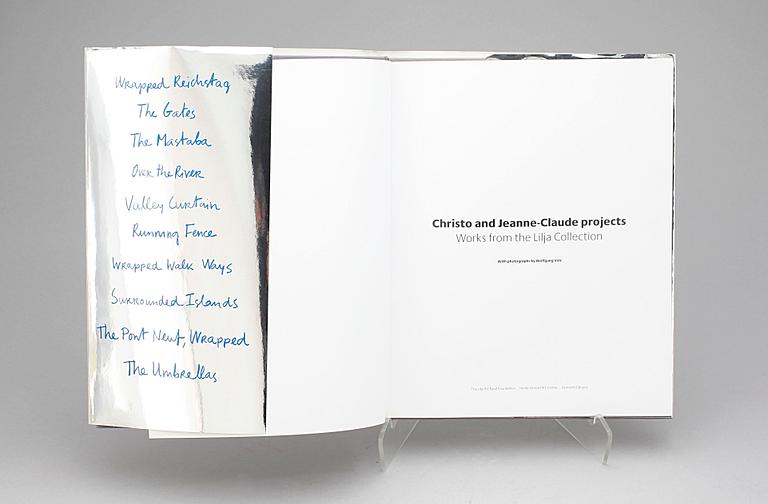 Wrapped Reichstag
The Gates
The Mastaba
Over the River
Valley Curtain
Running Fence
Wrapped Walk Ways
Surrounded Islands
The Pont Neuf, Wrapped
The Umbrellas
Christo and Jeanne-Claude projects
Works from the Lilja Collection
With photographs by Wolfgang Volz